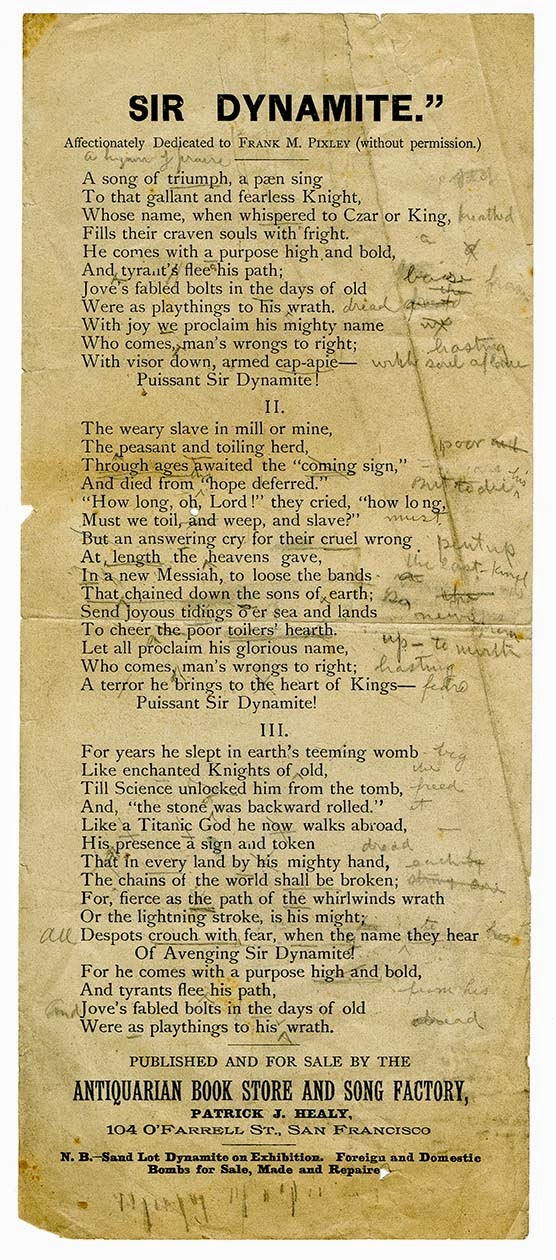 SIR DYNAMITE.”
Affectionately Dedicated to FRANK M. PIXLEY (without permission.)
a hymn of praise
A song of triumph, a pæn sing
To that gallant and fearless Knight,
Whose name, when whispered to Czar or King, breathed
Fills their craven souls with fright. a
He comes with a purpose high and bold,
And tyrant's flee his path; from
Jove's fabled bolts in the days of old
Were as playthings to his wrath. dread
With joy we proclaim his mighty name
Who comes, man's wrongs to right; hasting
With visor down, armed cap-apie— with soul aflame
Puissant Sir Dynamite!
II.
The weary slave in mill or mine,
The peasant and toiling herd, poor
Through ages awaited the “coming sign,”
And died from “hope deferred.” his
“How long, oh, Lord!” they cried, “how lo ng,
Must we toil, and weep, and slave?” must
But an answering cry for their cruel wrong pent up
At length the heavens gave, the last
In a new Messiah, to loose the bands
That chained down the sons of earth;
Send joyous tidings o'er sea and lands news
To cheer the poor toilers' hearth. from
Let all proclaim his glorious name, up - to mirth
Who comes, man's wrongs to right; hasting
A terror he brings to the heart of Kings—
Puissant Sir Dynamite!
III.
For years he slept in earth's teeming womb big
Like enchanted Knights of old, the
Till Science unlocked him from the tomb, freed
And, “the stone was backward rolled.” it
Like a Titanic God he now walks abroad,
His presence a sign and token dread
That in every land by his mighty hand,
The chains of the world shall be broken;
For, fierce as the path of the whirlwinds wrath
Or the lightning stroke, is his might;
All Despots crouch with fear, when the name they hear
Of Avenging Sir Dynamite!
For he comes with a purpose high and bold,
And tyrants flee his path, from his
and Jove's fabled bolts in the days of old
Were as playthings to his wrath. dread
PUBLISHED AND FOR SALE BY THE
ANTIQUARIAN BOOK STORE AND SONG FACTORY,
PATRICK J. HEALY,
104 O'FARRELL ST., SAN FRANCISCO
N. B.—Sand Lot Dynamite on Exhibition. Foreign and Domestic
Bombs for Sale, Made and Repaire